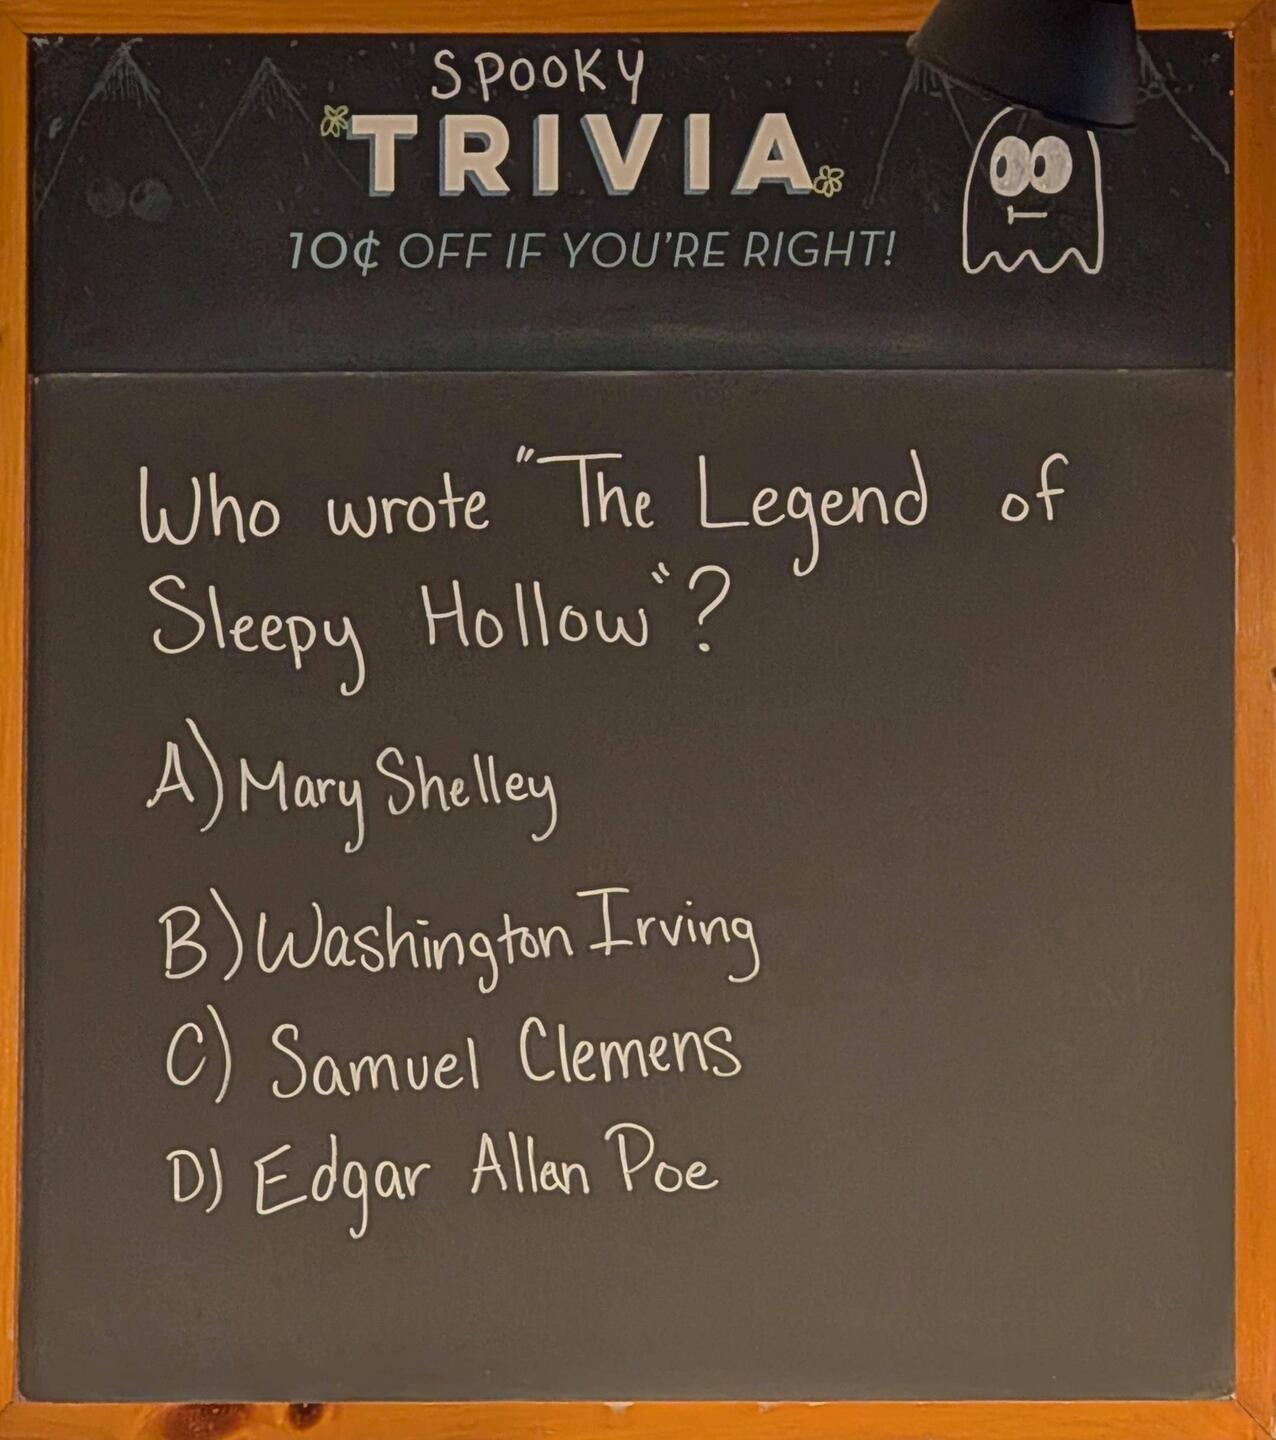 SPOOKY
TRIVIA
10¢ OFF IF YOU'RE RIGHT!
Who wrote "The Legend of
Sleepy Hollow"?
A) Mary Shelley
B) Washington Irving
C) Samuel Clemens
D) Edgar Allen Poe